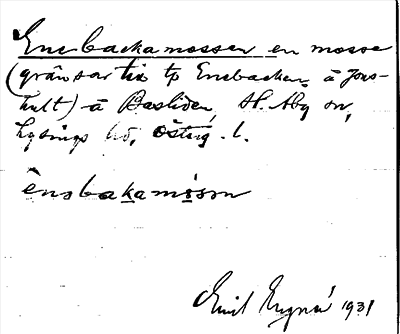 Enebackamossen en mosse
(gränsar till tp Enebacken å Jons-
hult) å Basliden, St. Åby sn,
Lysings hd, Östrg. l.
ènəbakamòsən
Emil 1931